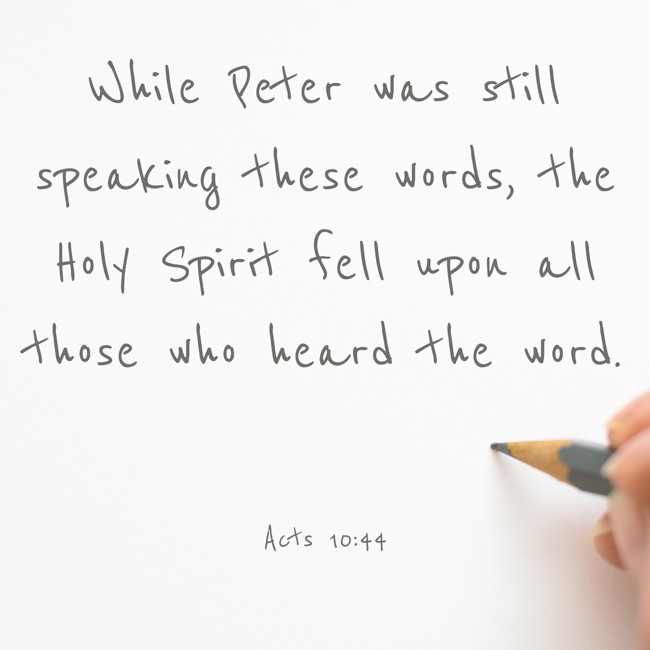 While Peter was still
speaking these words, the
Holy Spirit fell upon all
those who heard the word.
Acts 10:44